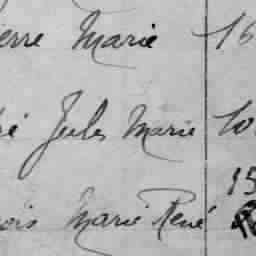 erre Marie 16
é Jules Marie 10
15
ois Marie René